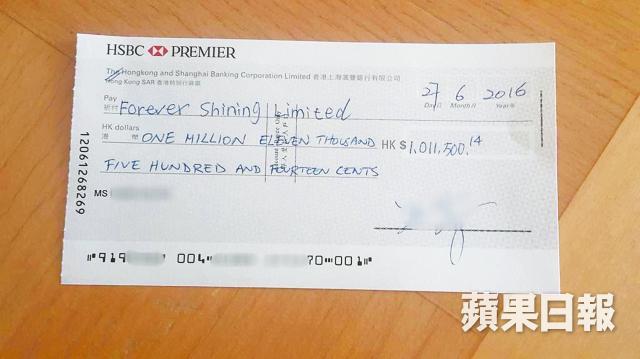 HSBC PREMIER
The Hongkong and Shanghai Banking Corporation Limited 香港上海滙豐銀行有限公司
Hong Kong SAR 香港特別行政區
27 6 2016
Day 日 Month 月 Year 年
Pay
祈付 Forever Shining Limited
HK dollars
港幣 ONE MILLION ELEVEN THOUSAND HK $ 1,011,500.14
FIVE HUNDRED AND FOURTEEN CENTS
MS
12061268269
919 004 70 001
蘋果日報